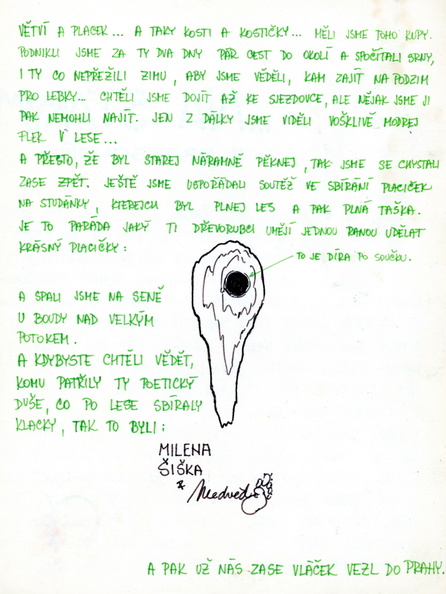 VĚTVÍ A PLACEK... A TAKY KOSTI A KOSTIČKY... MĚLI JSME TOHO KUPY.
PODNIKLI JSME ZA TY DVA DNY PÁR CEST DO OKOLÍ A SPOČÍTALI SRNY,
I TY CO NEPŘEŽILI ZIMU, ABY JSME VĚDĚLI, KAM ZAJÍT NA PODZIM
PRO LEBKY... CHTĚLI JSME DOJÍT AŽ KE SJEZDOVCE, ALE NĚJAK JSME JI
PAK NEMOHLI NAJÍT. JEN Z DÁLKY JSME VIDĚLI VOŠKLIVĚ MODREJ
FLEK V LESE...
A PŘESTO, ŽE BYL STAREJ NÁRAMNĚ PĚKNEJ, TAK JSME SE CHYSTALI
ZASE ZPĚT. JEŠTĚ JSME USPOŘÁDALI SOUTĚŽ VE SBÍRÁNÍ PLACIČEK
NA STUDÁNKY, KTEREJCH BYL PLNEJ LES A PAK PLNÁ TAŠKA.
JE TO PARÁDA JAKÝ TI DŘEVORUBCI UMĚJÍ JEDNOU RANOU UDĚLAT
KRÁSNÝ PLACIČKY:
TO JE DÍRA PO SOUČKU.
A SPALI JSME NA SENĚ
U BOUDY NAD VELKÝM
POTOKEM.
A KDYBYSTE CHTĚLI VĚDĚT,
KOMU PATŘILY TY POETICKÝ
DUŠE, CO PO LESE SBÍRALY
KLACKY, TAK TO BYLI:
MILENA
ŠIŠKA
Medvěd
A PAK UŽ NÁS ZASE VLÁČEK VEZL DO PRAHY.